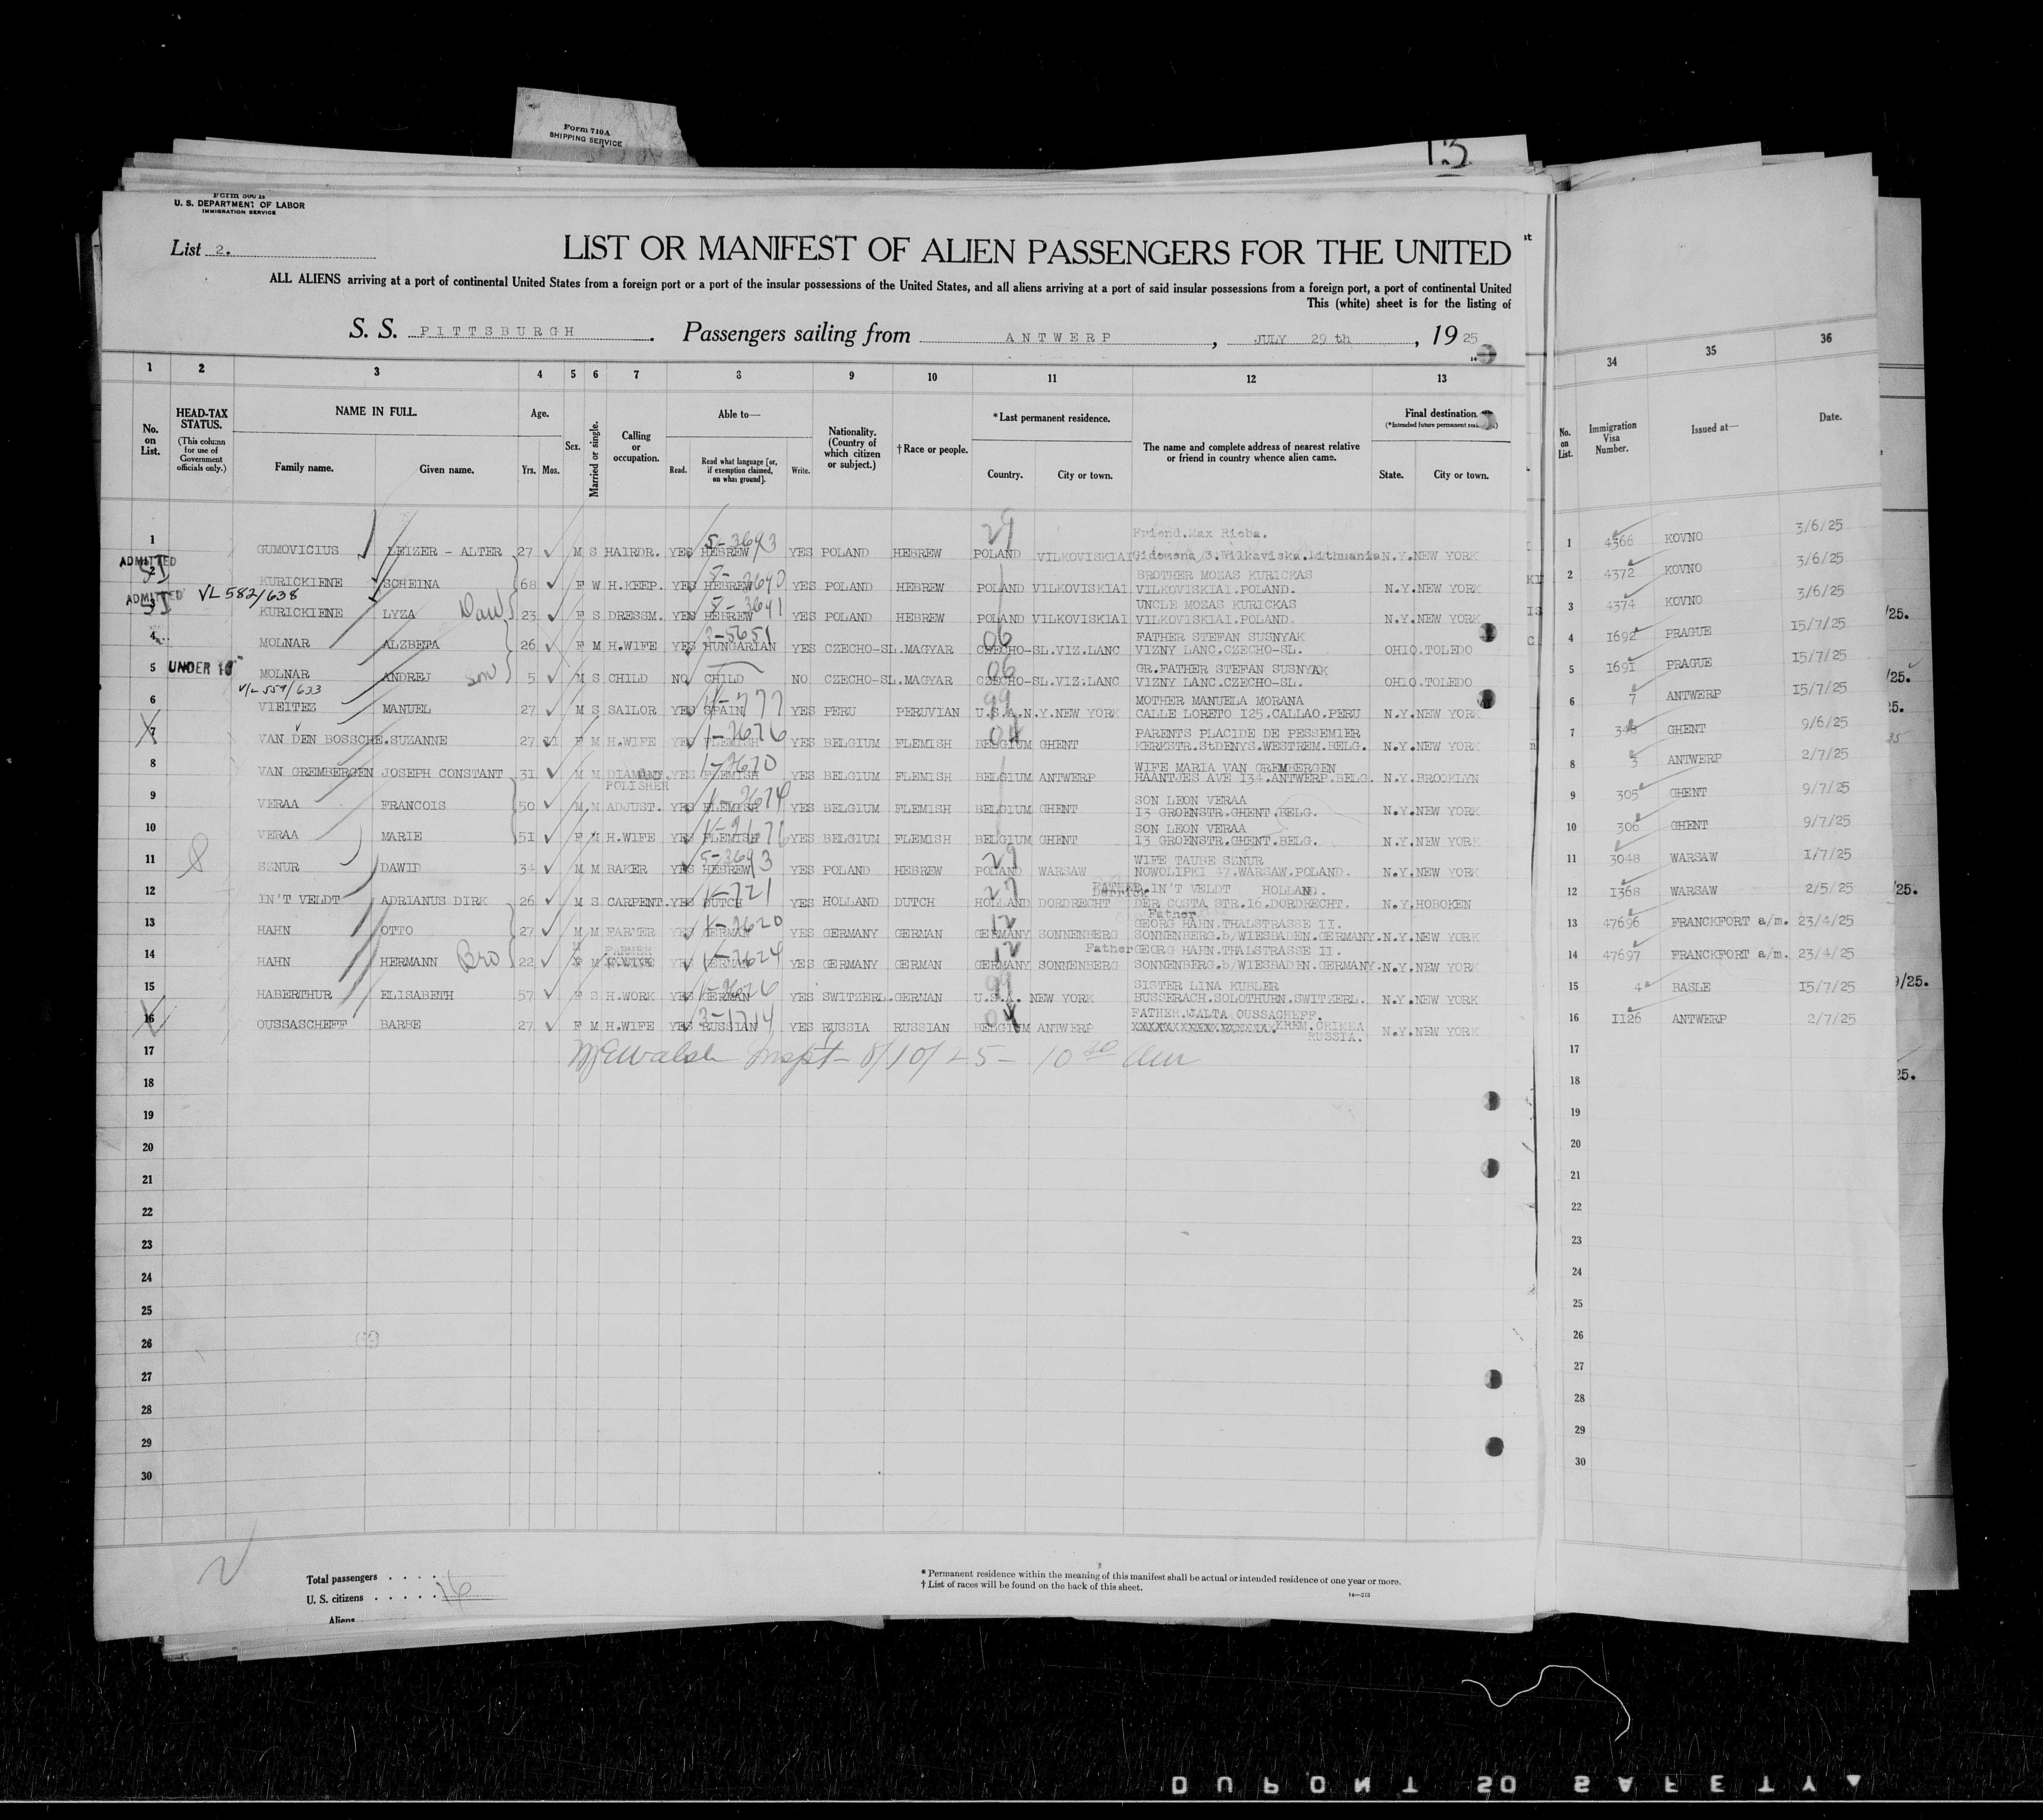 Form 710A
SHIPPING SERVICE
13
Form 500 B
U. S. DEPARTMENT OF LABOR
IMMIGRATION SERVICE
List 2.
LIST OR MANIFEST OF ALIEN PASSENGERS FOR THE UNITED
ALL ALIENS arriving at a port of continental United States from a foreign port or a port of the insular possessions of the United States, and all aliens arriving at a port of said insular possessions from a foreign port, a port of continental United
This (white) sheet is for the listing of
S. S. PITTSBURGH. Passengers sailing from ANTWERP, JULY 29 th, 19 25
1 2 3 4 5 6 7 8 9 10 11 12 13 34 35 36
No. on List.
HEAD-TAX STATUS.
(This column for use of Government officials only.)
NAME IN FULL.
Family name. Given name.
Age.
Yrs. Mos.
Sex.
Married or single.
Calling or occupation.
Able to—
Read. Read what language [or, if exemption claimed, on what ground]. Write.
Nationality. (Country of which citizen or subject.)
†Race or people.
*Last permanent residence.
Country. City or town.
The name and complete address of nearest relative or friend in country whence alien came.
Final destination.
(*Intended future permanent residence)
State. City or town.
No. on List.
Immigration Visa Number.
Issued at—
Date.
Friend.Max Rieba.
1 GUMOVICIUS LEIZER - ALTER 27 M S HAIRDR. YES HEBREW 5-3643 YES POLAND HEBREW 29 POLAND VILKOVISKIAI Gidomena 3.Wilkaviska.Lithuania N.Y. NEW YORK 1 4366 KOVNO 3/6/25
ADMITTED
BROTHER MOZAS KURICKAS
2 KURICKIENE SCHEINA 68 F W H.KEEP. YES HEBREW YES POLAND HEBREW POLAND VILKOVISKIAI VILKOVISKIAI.POLAND. N.Y. NEW YORK 2 4372 KOVNO 3/6/25
ADMITTED VL 582/638
UNCLE MOZAS KURICKAS
3 KURICKIENE LYZA Dau 23 F S DRESSM. YES HEBREW 5-3641 YES POLAND HEBREW POLAND VILKOVISKIAI VILKOVISKIAI.POLAND. N.Y. NEW YORK 3 4374 KOVNO 3/6/25
FATHER STEFAN SUSNYAK
4 MOLNAR ALZBETA 26 F M H.WIFE YES HUNGARIAN 3-5651 YES CZECHO-SL. MAGYAR 06 CZECHO-SL. VIZ.LANC VIZNY LANC.CZECHO-SL. OHIO. TOLEDO 4 1692 PRAGUE 15/7/25
GR.FATHER STEFAN SUSNYAK
5 UNDER 16 MOLNAR ANDREJ son 5 M S CHILD NO CHILD NO CZECHO-SL. MAGYAR 06 CZECHO-SL. VIZ.LANC VIZNY LANC.CZECHO-SL. OHIO. TOLEDO 5 1691 PRAGUE 15/7/25
MOTHER MANUELA MORANA
6 VIEITEZ MANUEL 27 M S SAILOR YES SPAIN YES PERU PERUVIAN 99 U.S.A. N.Y.NEW YORK CALLE LORETO 125.CALLAO.PERU N.Y. NEW YORK 6 7 ANTWERP 15/7/25
PARENTS PLACIDE DE PESSEMIER
7 VAN DEN BOSSCHE. SUZANNE 27 F M H.WIFE YES FLEMISH YES BELGIUM FLEMISH 04 BELGIUM GHENT KERKSTR.StDENYS.WESTREM.BELG. N.Y. NEW YORK 7 GHENT 9/6/25
WIFE MARIA VAN GREMBERGEN
8 VAN GREMBERGEN JOSEPH CONSTANT 31 M M DIAMOND. POLISHER YES FLEMISH YES BELGIUM FLEMISH BELGIUM ANTWERP HAANTJES AVE 134.ANTWERP.BELG. N.Y. BROOKLYN 8 3 ANTWERP 2/7/25
SON LEON VERAA
9 VERAA FRANCOIS 50 M M ADJUST. YES FLEMISH YES BELGIUM FLEMISH BELGIUM GHENT 13 GROENSTR.GHENT.BELG. N.Y. NEW YORK 9 305 GHENT 9/7/25
SON LEON VERAA
10 VERAA MARIE 51 F M H.WIFE YES FLEMISH YES BELGIUM FLEMISH BELGIUM GHENT 13 GROENSTR.GHENT.BELG. N.Y. NEW YORK 10 306 GHENT 9/7/25
WIFE TAUBE SZNUR
11 SZNUR DAWID 34 M M BAKER YES HEBREW 5-3643 YES POLAND HEBREW 29 POLAND WARSAW NOWOLIPKI 47.WARSAW.POLAND. N.Y. NEW YORK 11 3048 WARSAW 1/7/25
FATHER.IN'T VELDT HOLLAND.
12 IN'T VELDT ADRIANUS DIRK 26 M S CARPENT. YES DUTCH 1-721 YES HOLLAND DUTCH 27 HOLLAND DORDRECHT DER COSTA STR.16.DORDRECHT. N.Y. HOBOKEN 12 1368 WARSAW 2/5/25
Father
GEORG HAHN.THALSTRASSE II.
13 HAHN OTTO 27 M M FARMER YES GERMAN YES GERMANY GERMAN 12 GERMANY SONNENBERG SONNENBERG.b/WIESBADEN.GERMANY. N.Y. NEW YORK 13 47696 FRANCKFORT a/m. 23/4/25
Father GEORG HAHN.THALSTRASSE II.
14 HAHN HERMANN Bro 22 M M FARMER YES GERMAN YES GERMANY GERMAN 12 GERMANY SONNENBERG SONNENBERG.b/WIESBADEN.GERMANY. N.Y. NEW YORK 14 47697 FRANCKFORT a/m. 23/4/25
SISTER LINA KUBLER
15 HABERTHUR ELISABETH 57 F S H.WORK YES GERMAN YES SWITZERL. GERMAN 99 U.S.A. NEW YORK BUSSERACH.SOLOTHURN.SWITZERL. N.Y. NEW YORK 15 4 BASLE 15/7/25
FATHER JALTA OUSSACHEFF.
16 OUSSASCHEFF BARBE 27 F M H.WIFE YES RUSSIAN 3-1714 YES RUSSIA RUSSIAN 04 BELGIUM ANTWERP KREM.CRIMEA RUSSIA. N.Y. NEW YORK 16 1126 ANTWERP 2/7/25
17 McWalsh Inspt - 8/10/25 - 10 30 Am 17
18 18
19 19
20 20
21 21
22 22
23 23
24 24
25 25
26 26
27 27
28 28
29 29
30 30
Total passengers . . . .
U. S. citizens . . . . . 16
Aliens
* Permanent residence within the meaning of this manifest shall be actual or intended residence of one year or more.
† List of races will be found on the back of this sheet.
14—213
DUPONT SO SAFETY